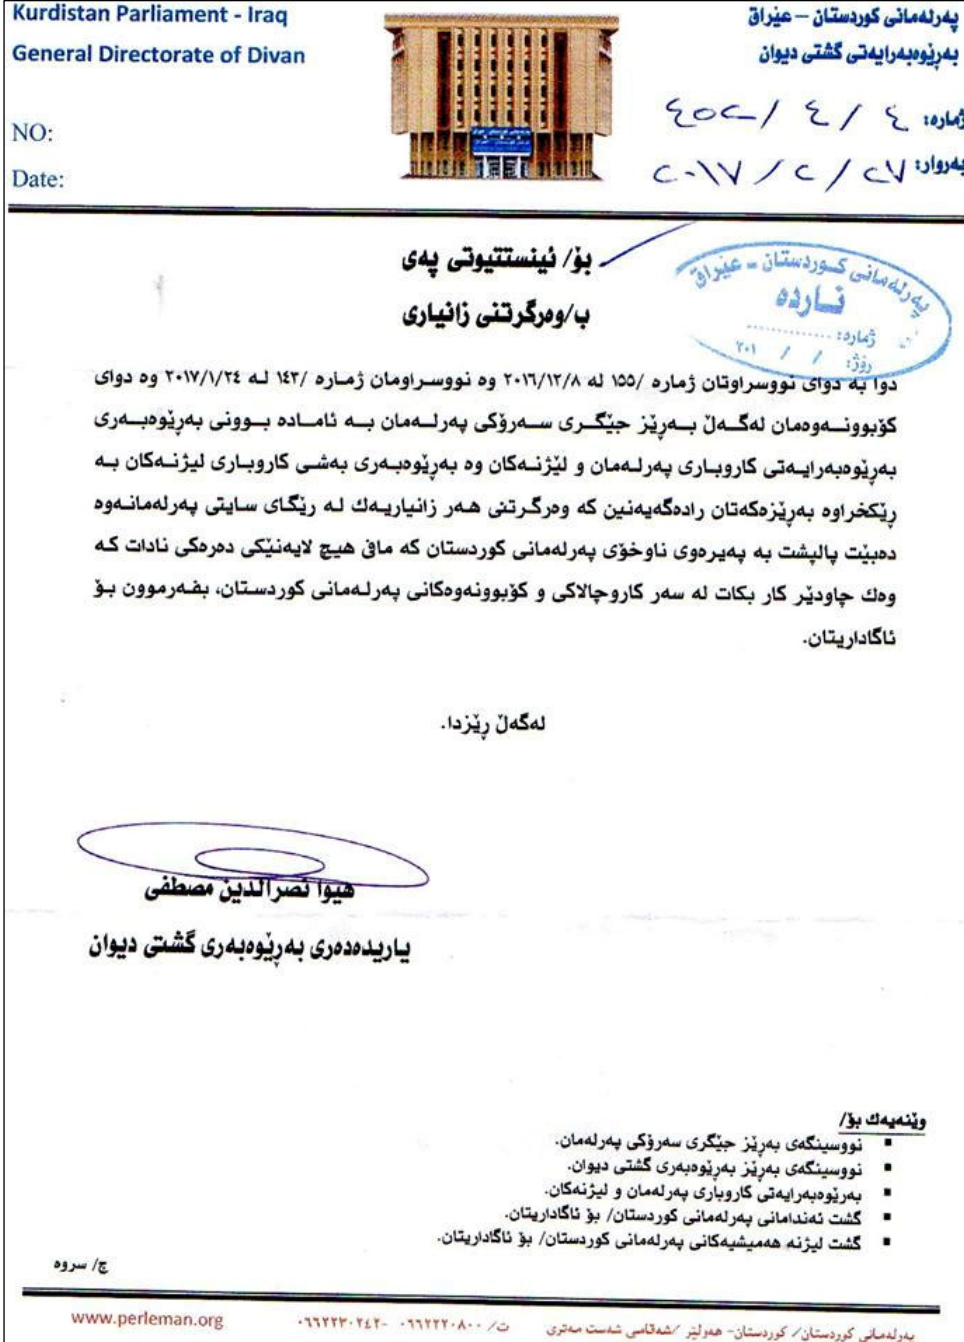 Kurdistan Parliament - Iraq
General Directorate of Divan
NO:
Date:
پەرلەمانی کوردستان – عێراق
بەڕێوەبەرایەتی گشتی دیوان
ژمارە: ٤ / ٤ /٤٥٢
بەروار: ٢٧ / ٢ / ٢٠١٧
بۆ/ ئینستتیوتی پەی
ب/وەرگرتنی زانیاری
پەرلەمانی کـوردستان - عێراق
نـاردە
ژمارە: ............
رۆژ: / / ٢٠١
دوا بە دوای نووسراوتان ژمارە /١٥٥ لە ٢٠١٦/١٢/٨ وە نووسـراومان ژمـارە /١٤٣ لـە ٢٠١٧/١/٢٤ وە دوای
کۆبوونــەوەمان لەگــەڵ بــەڕێز جێگــری ســەرۆکی پەرلــەمان بــە ئامــادە بــوونی بەڕێوەبــەری
بەڕێوەبەرایـەتی کاروبـاری پەرلـەمان و لێژنـەکان وە بەڕێوەبـەری بەشـی کاروبـاری لیژنـەکان بـە
ڕێکخراوە بەڕێزەکەتان رادەگەیەنین کە وەرگرتنی هـەر زانیاریـەك لـە رێگـای سـایتی پەرلەمانـەوە
دەبێت پاڵپشت بە پەیرەوی ناوخۆی پەرلەمانی کوردستان کە مافی هیچ لایەنێکی دەرەکی نادات کـە
وەك چاودێر کار بکات لە سەر کاروچالاکی و کۆبوونەوەکانی پەرلـەمانی کوردسـتان، بفـەرموون بـۆ
ئاگاداریتان.
لەگەڵ رێزدا.
هیوا نصرالدین مصطفی
یاریدەدەری بەڕێوەبەری گشتی دیوان
وێنەیەك بۆ/
▪ نووسینگەی بەڕێز جێگری سەرۆکی پەرلەمان.
▪ نووسینگەی بەڕێز بەڕێوەبەری گشتی دیوان.
▪ بەڕێوەبەرایەتی کاروباری پەرلەمان و لیژنەکان.
▪ گشت ئەندامانی پەرلەمانی کوردستان/ بۆ ئاگاداریتان.
▪ گشت لیژنە هەمیشیەکانی پەرلەمانی کوردستان/ بۆ ئاگاداریتان.
ج/ سروە
پەرلەمانی کوردستان/ کوردستان- هەولێر /شەقامی شەست مەتری ت/ ٠٦٦٢٢٢٠٨٠٠ -٠٦٦٢٢٣٠٢٤٢ www.perleman.org